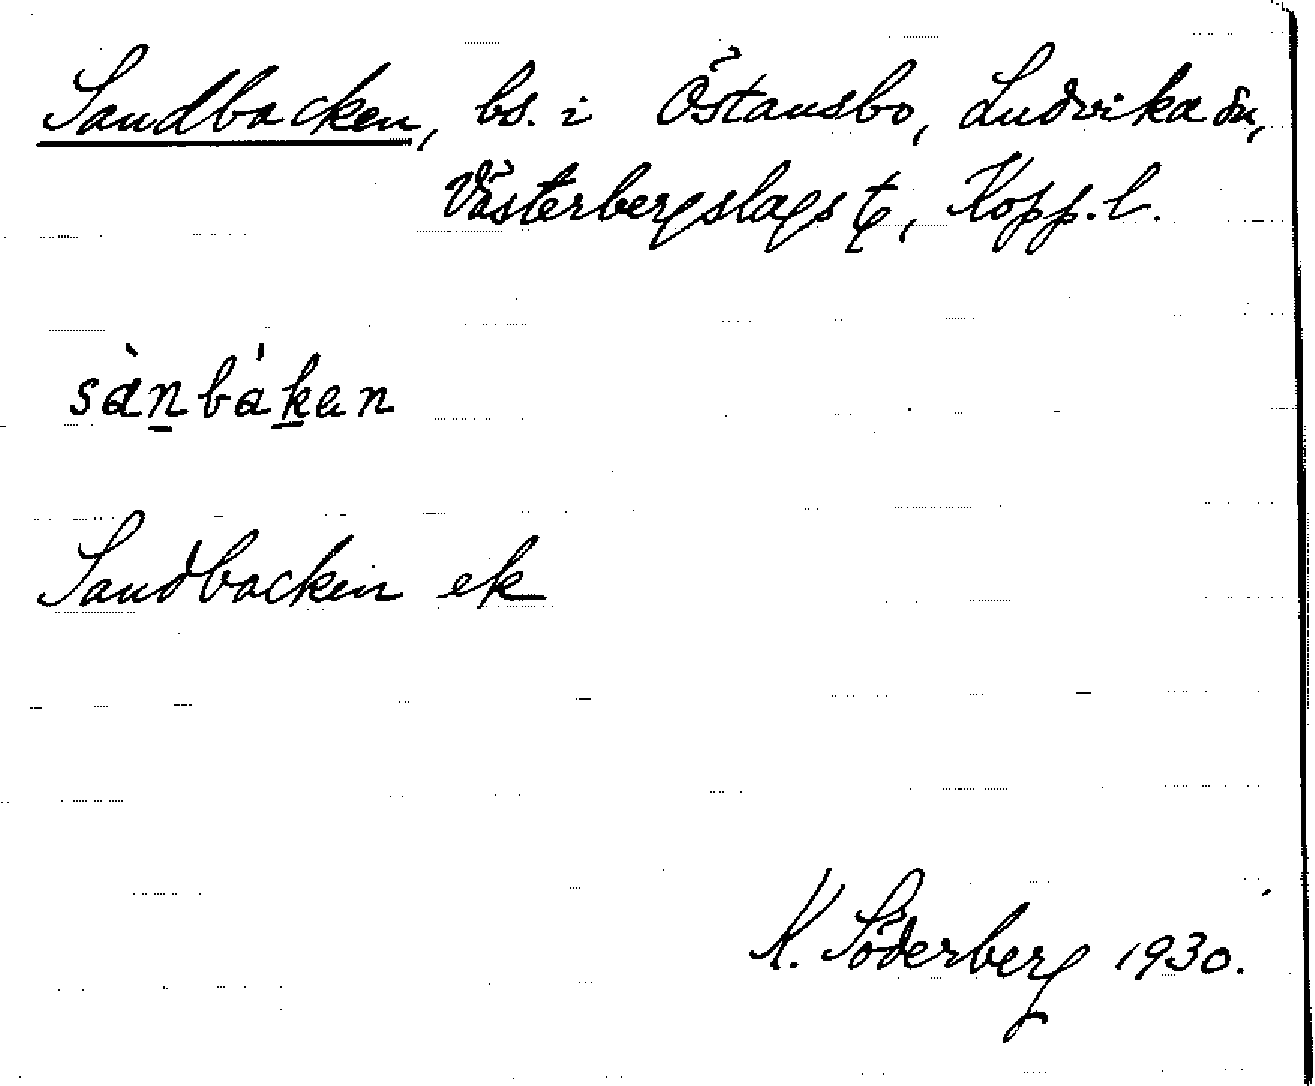 Sandbacken, bs. i Östansbo, Ludvika sn,
Västerbergslags t, Kopp. l.
sànbákan
Sandbacken ek
K. Söderberg 1930.